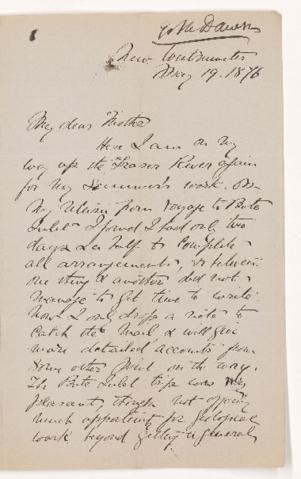 G M Dawson
New Westminster
May 19. 1876
My dear Mother
Here I am on my
way up the Fraser River again
for my summer's work. On
my return from voyage to Bute
Inlet I found I had only two
days & a half to complete
all arrangements, & between
one thing & another did not
manage to get time to write.
Now I only drop a note to
catch the mail & will give
more detailed accounts from
some other point on the way.
The Bute Inlet trip was very
pleasant though not offering
much opportunity for geological
work beyond getting a general